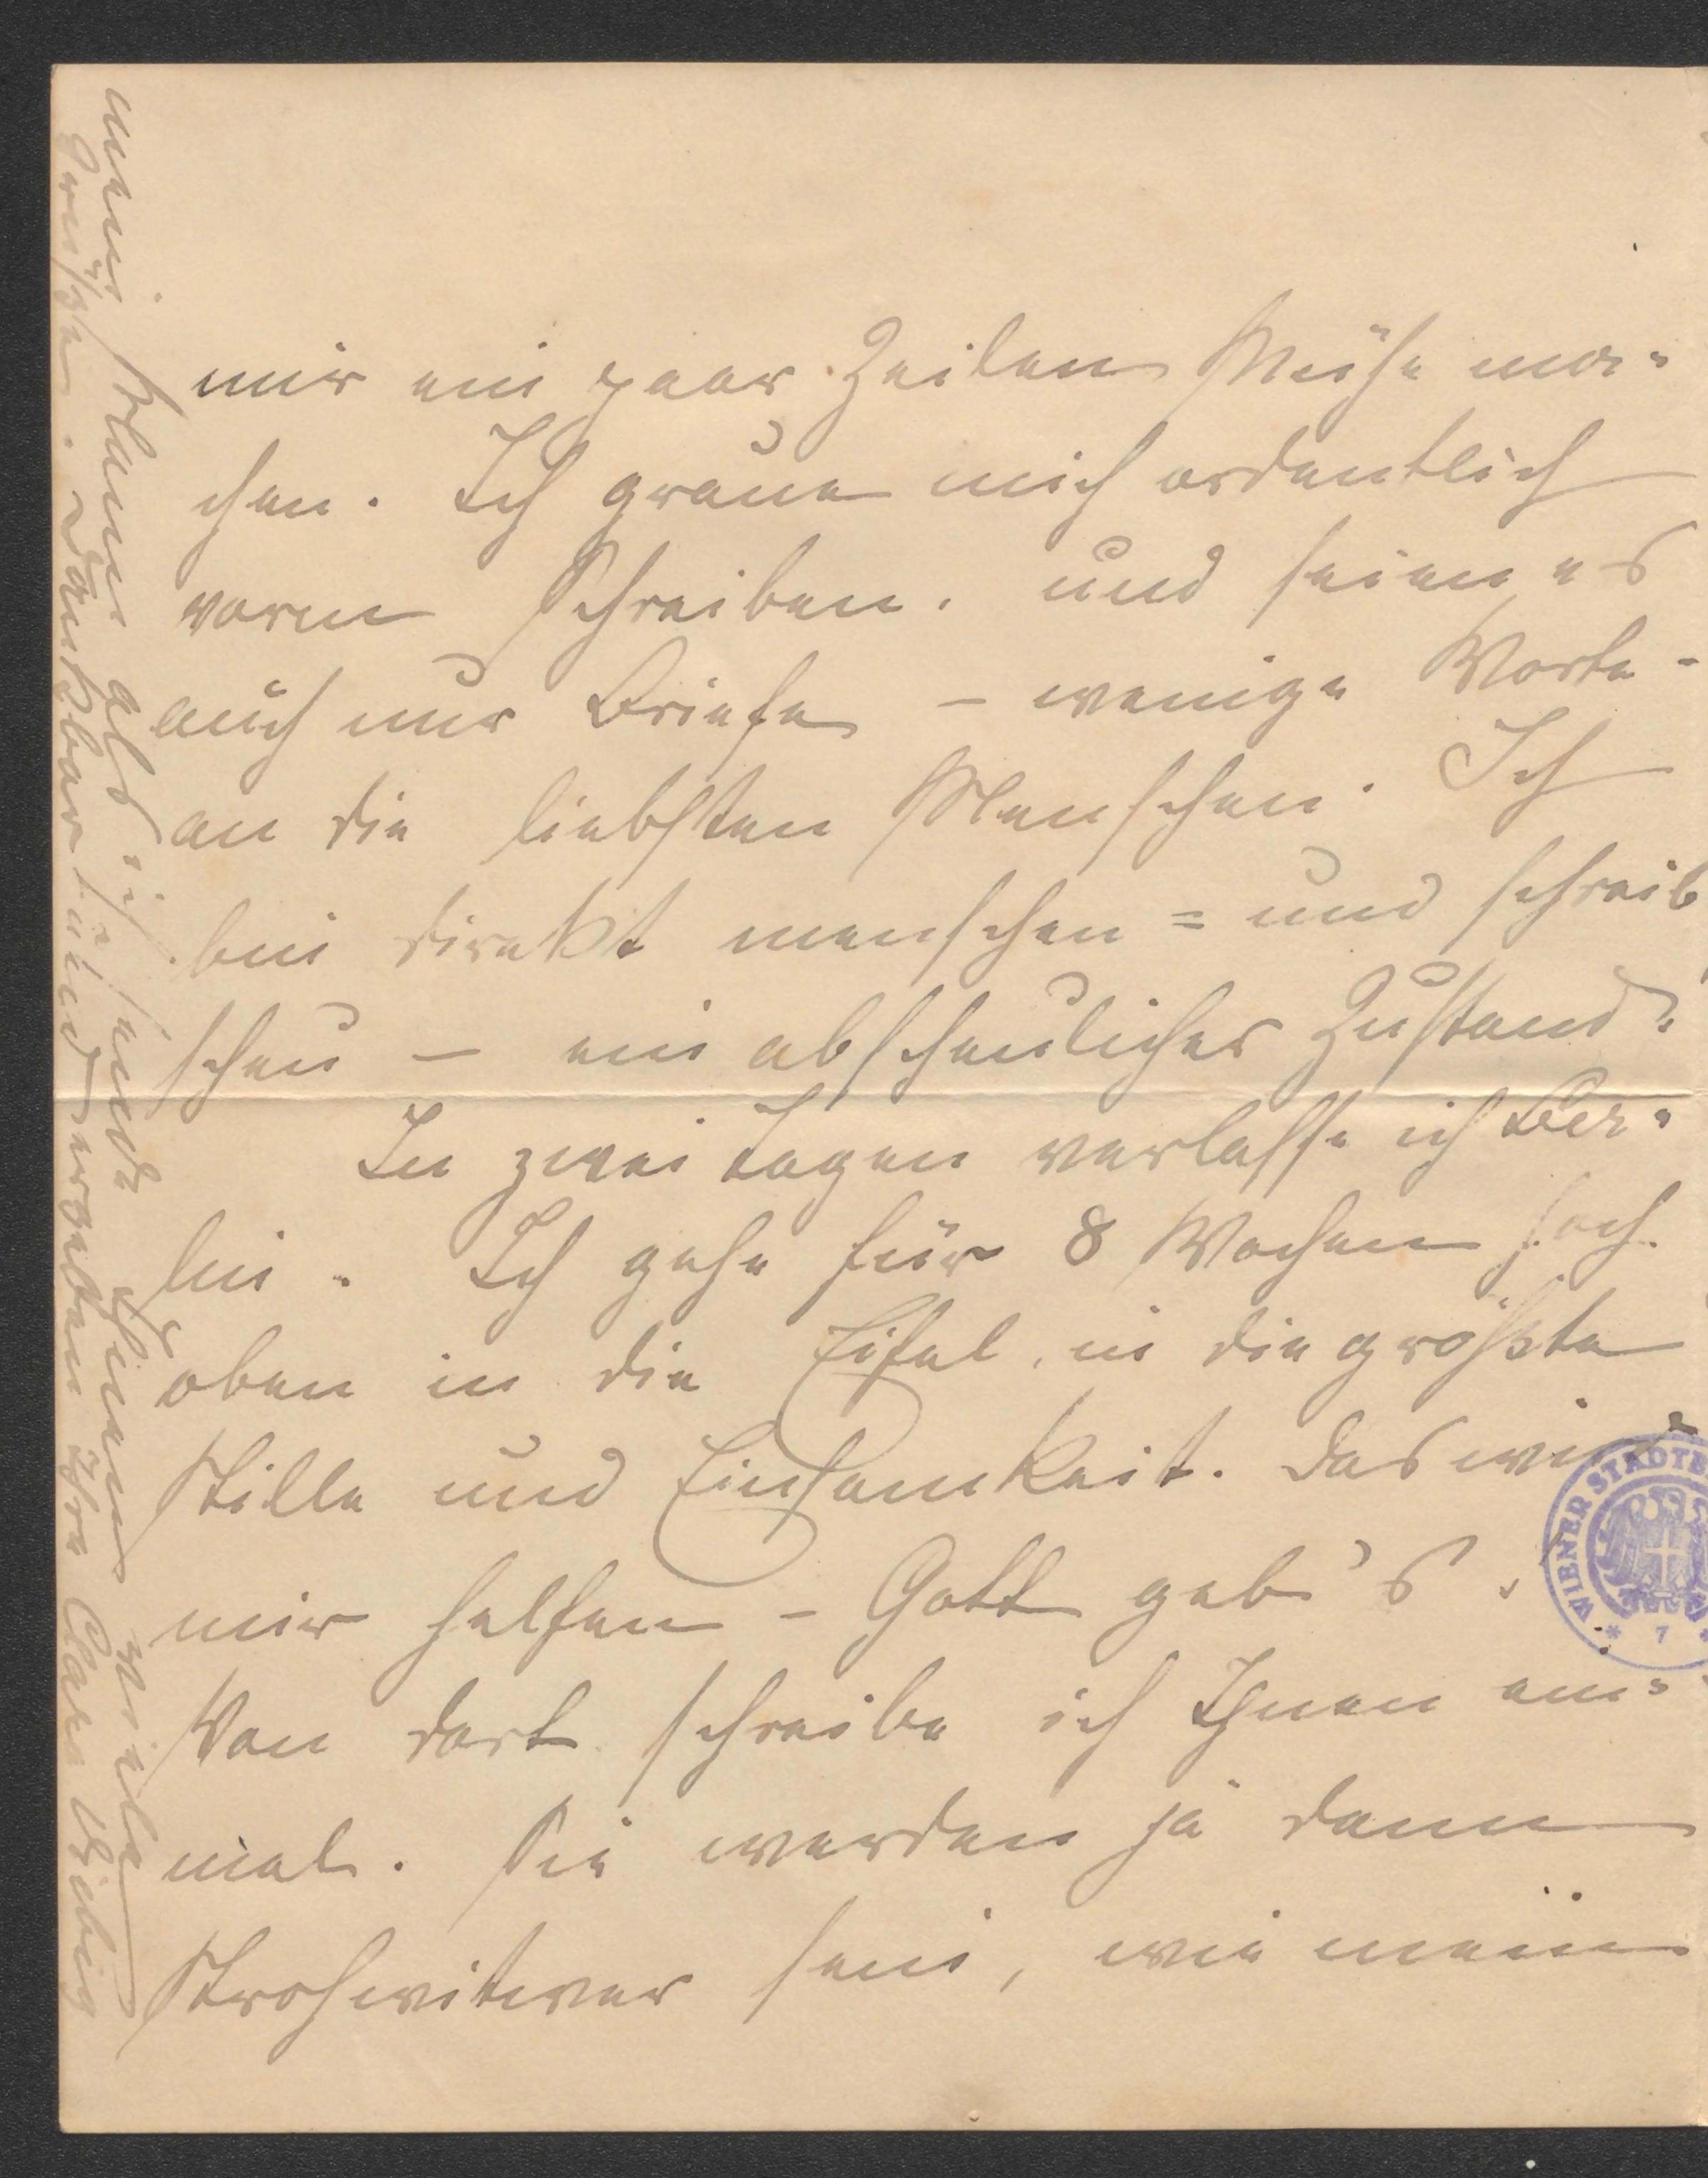 mir ein paar Zeilen Mühe ma-
chen. Ich graue mich ordentlich
vorm Schreiben, und seien es
auch nur Briefe – wenige Worte –
an die liebsten Menschen. Ich
bin direkt menschen = und schreib
scheu – ein abscheulicher Zustand.
In zwei Tagen verlasse ich Ber-
lin. Ich gehe für 8 Wochen hoch
oben in die Eifel, in die größte
Stille und Einsamkeit. Das wird
mir helfen – Gott geb's.
Von dort schreibe ich Ihnen ein-
mal. Sie werden ja dann
Strohwitwer sein, wie mein
ich sende Ihnen viele
Grüße. Dankbar und ergeben Ihre Clara Viebig
WIENER STADTB
* 7 *